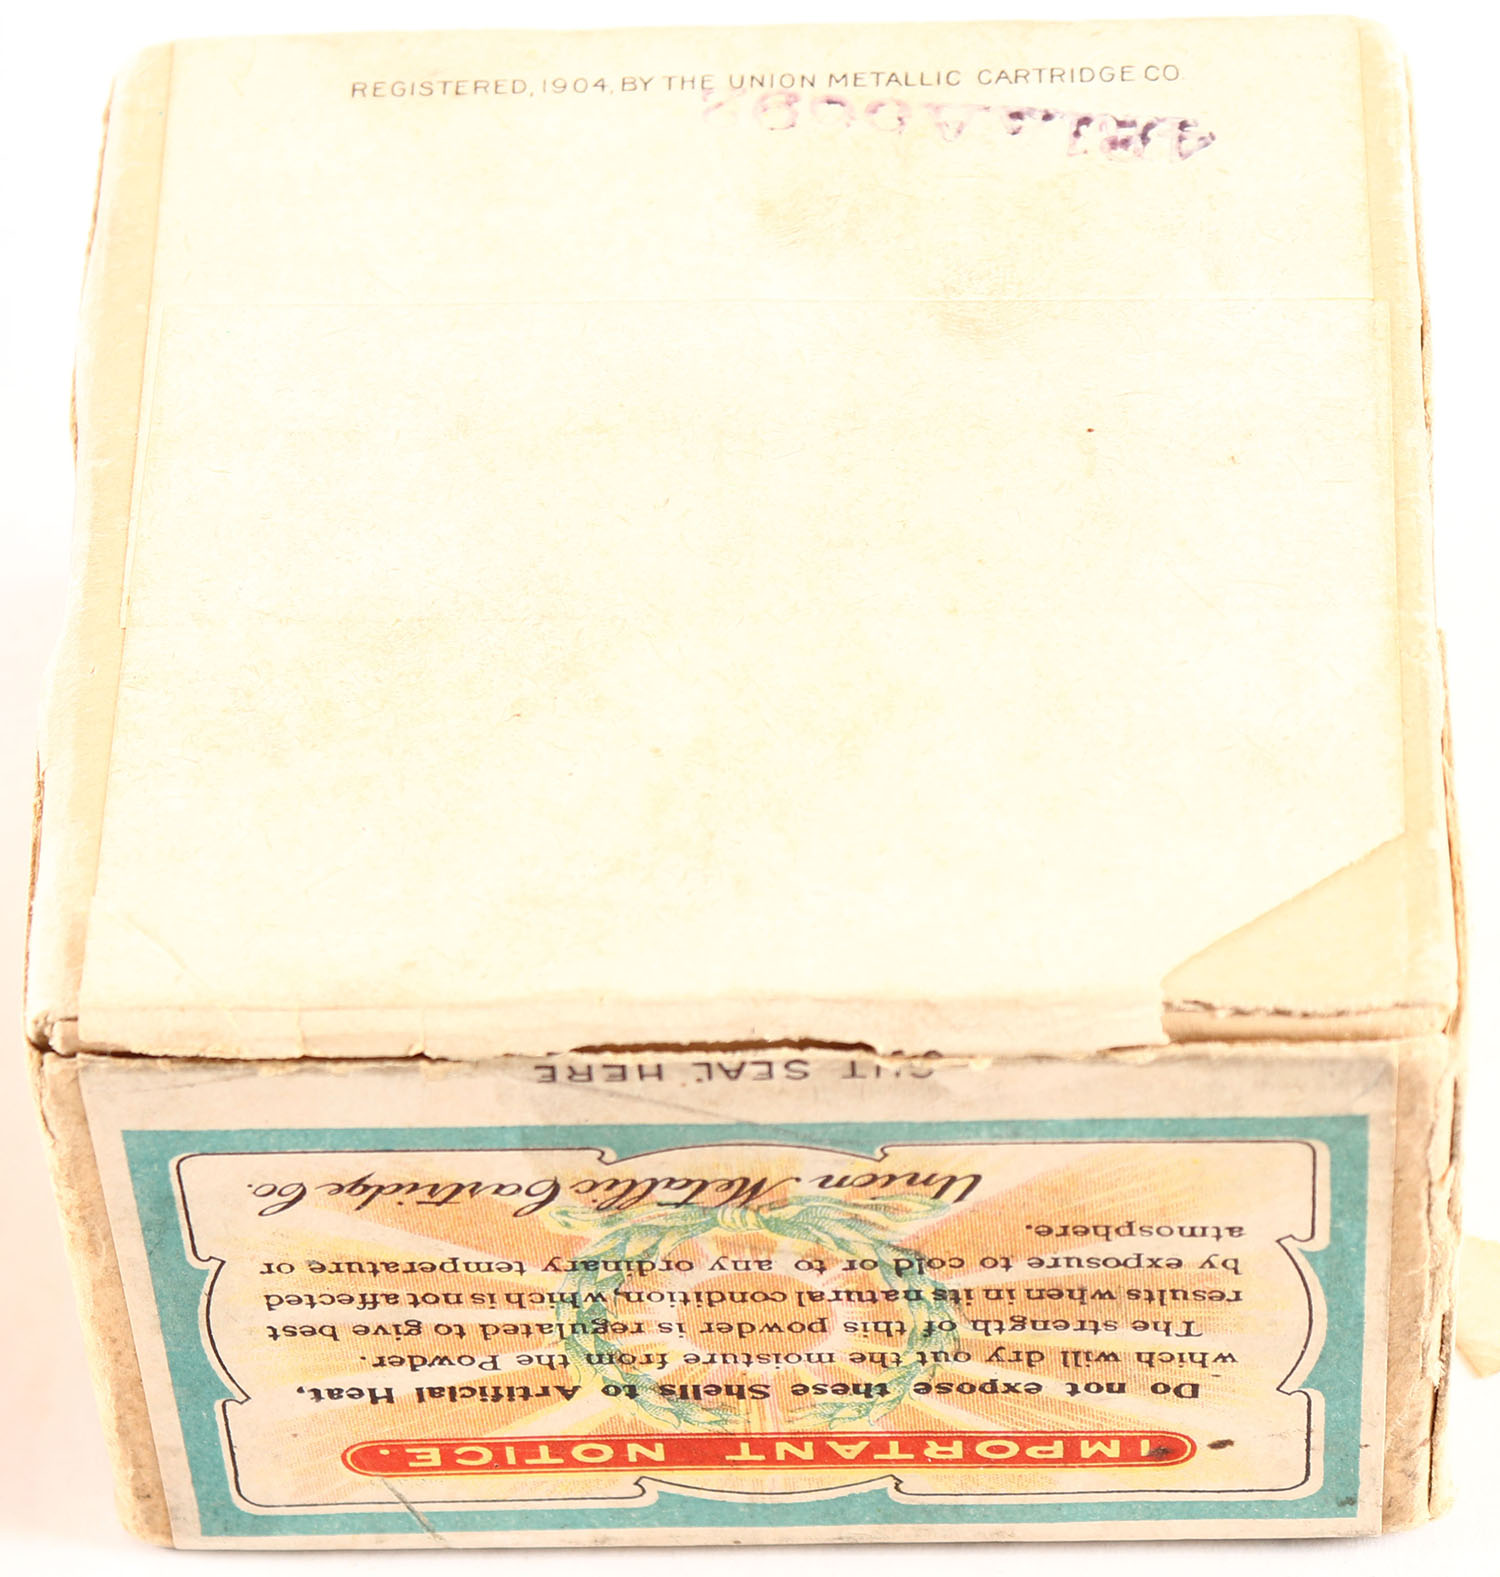 REGISTERED, 1904, BY THE UNION METALLIC CARTRIDGE CO.
CUT SEAL HERE
IMPORTANT NOTICE.
Do not expose these Shells to Artificial Heat,
which will dry out the moisture from the Powder.
The strength of this powder is regulated to give best
results when in its natural condition, which is not affected
by exposure to cold or to any ordinary temperature or
atmosphere.
Union Metallic Cartridge Co.